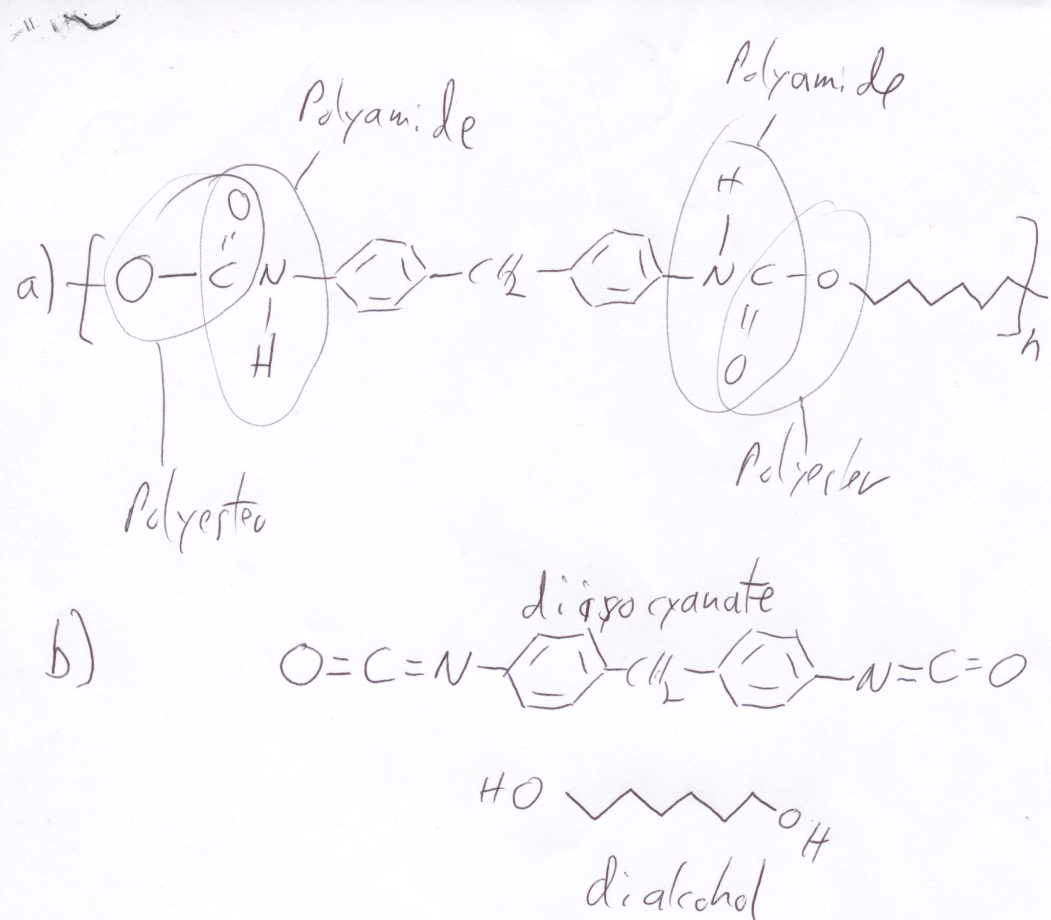 Polyamide
Polyamide
a) [ O - C N - CH2 - N C - O ] n
O
H
H
O
Polyester
Polyester
b)
diisocyanate
O=C=N- -CH2- -N=C=O
HO OH
dialcohol